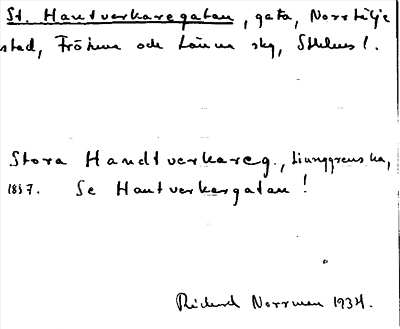 St. Hantverkaregatan, gata, Norrtälje
stad, Frötuna och Länna skg, Sthlms l.
Stora Handtverkareg., Ljunggrens ka,
1857. Se Hantverkargatan!
Rickard Norrman 1934.